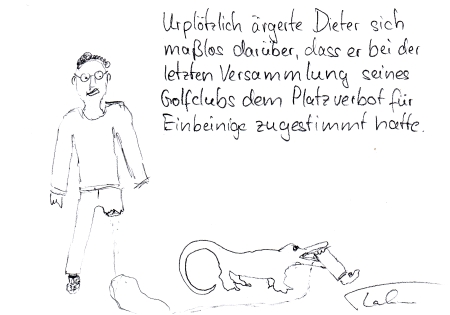 Urplötzlich ärgerte Dieter sich
maßlos darüber, dass er bei der
letzten Versammlung seines
Golfclubs dem Platzverbot für
Einbeinige zugestimmt hatte.